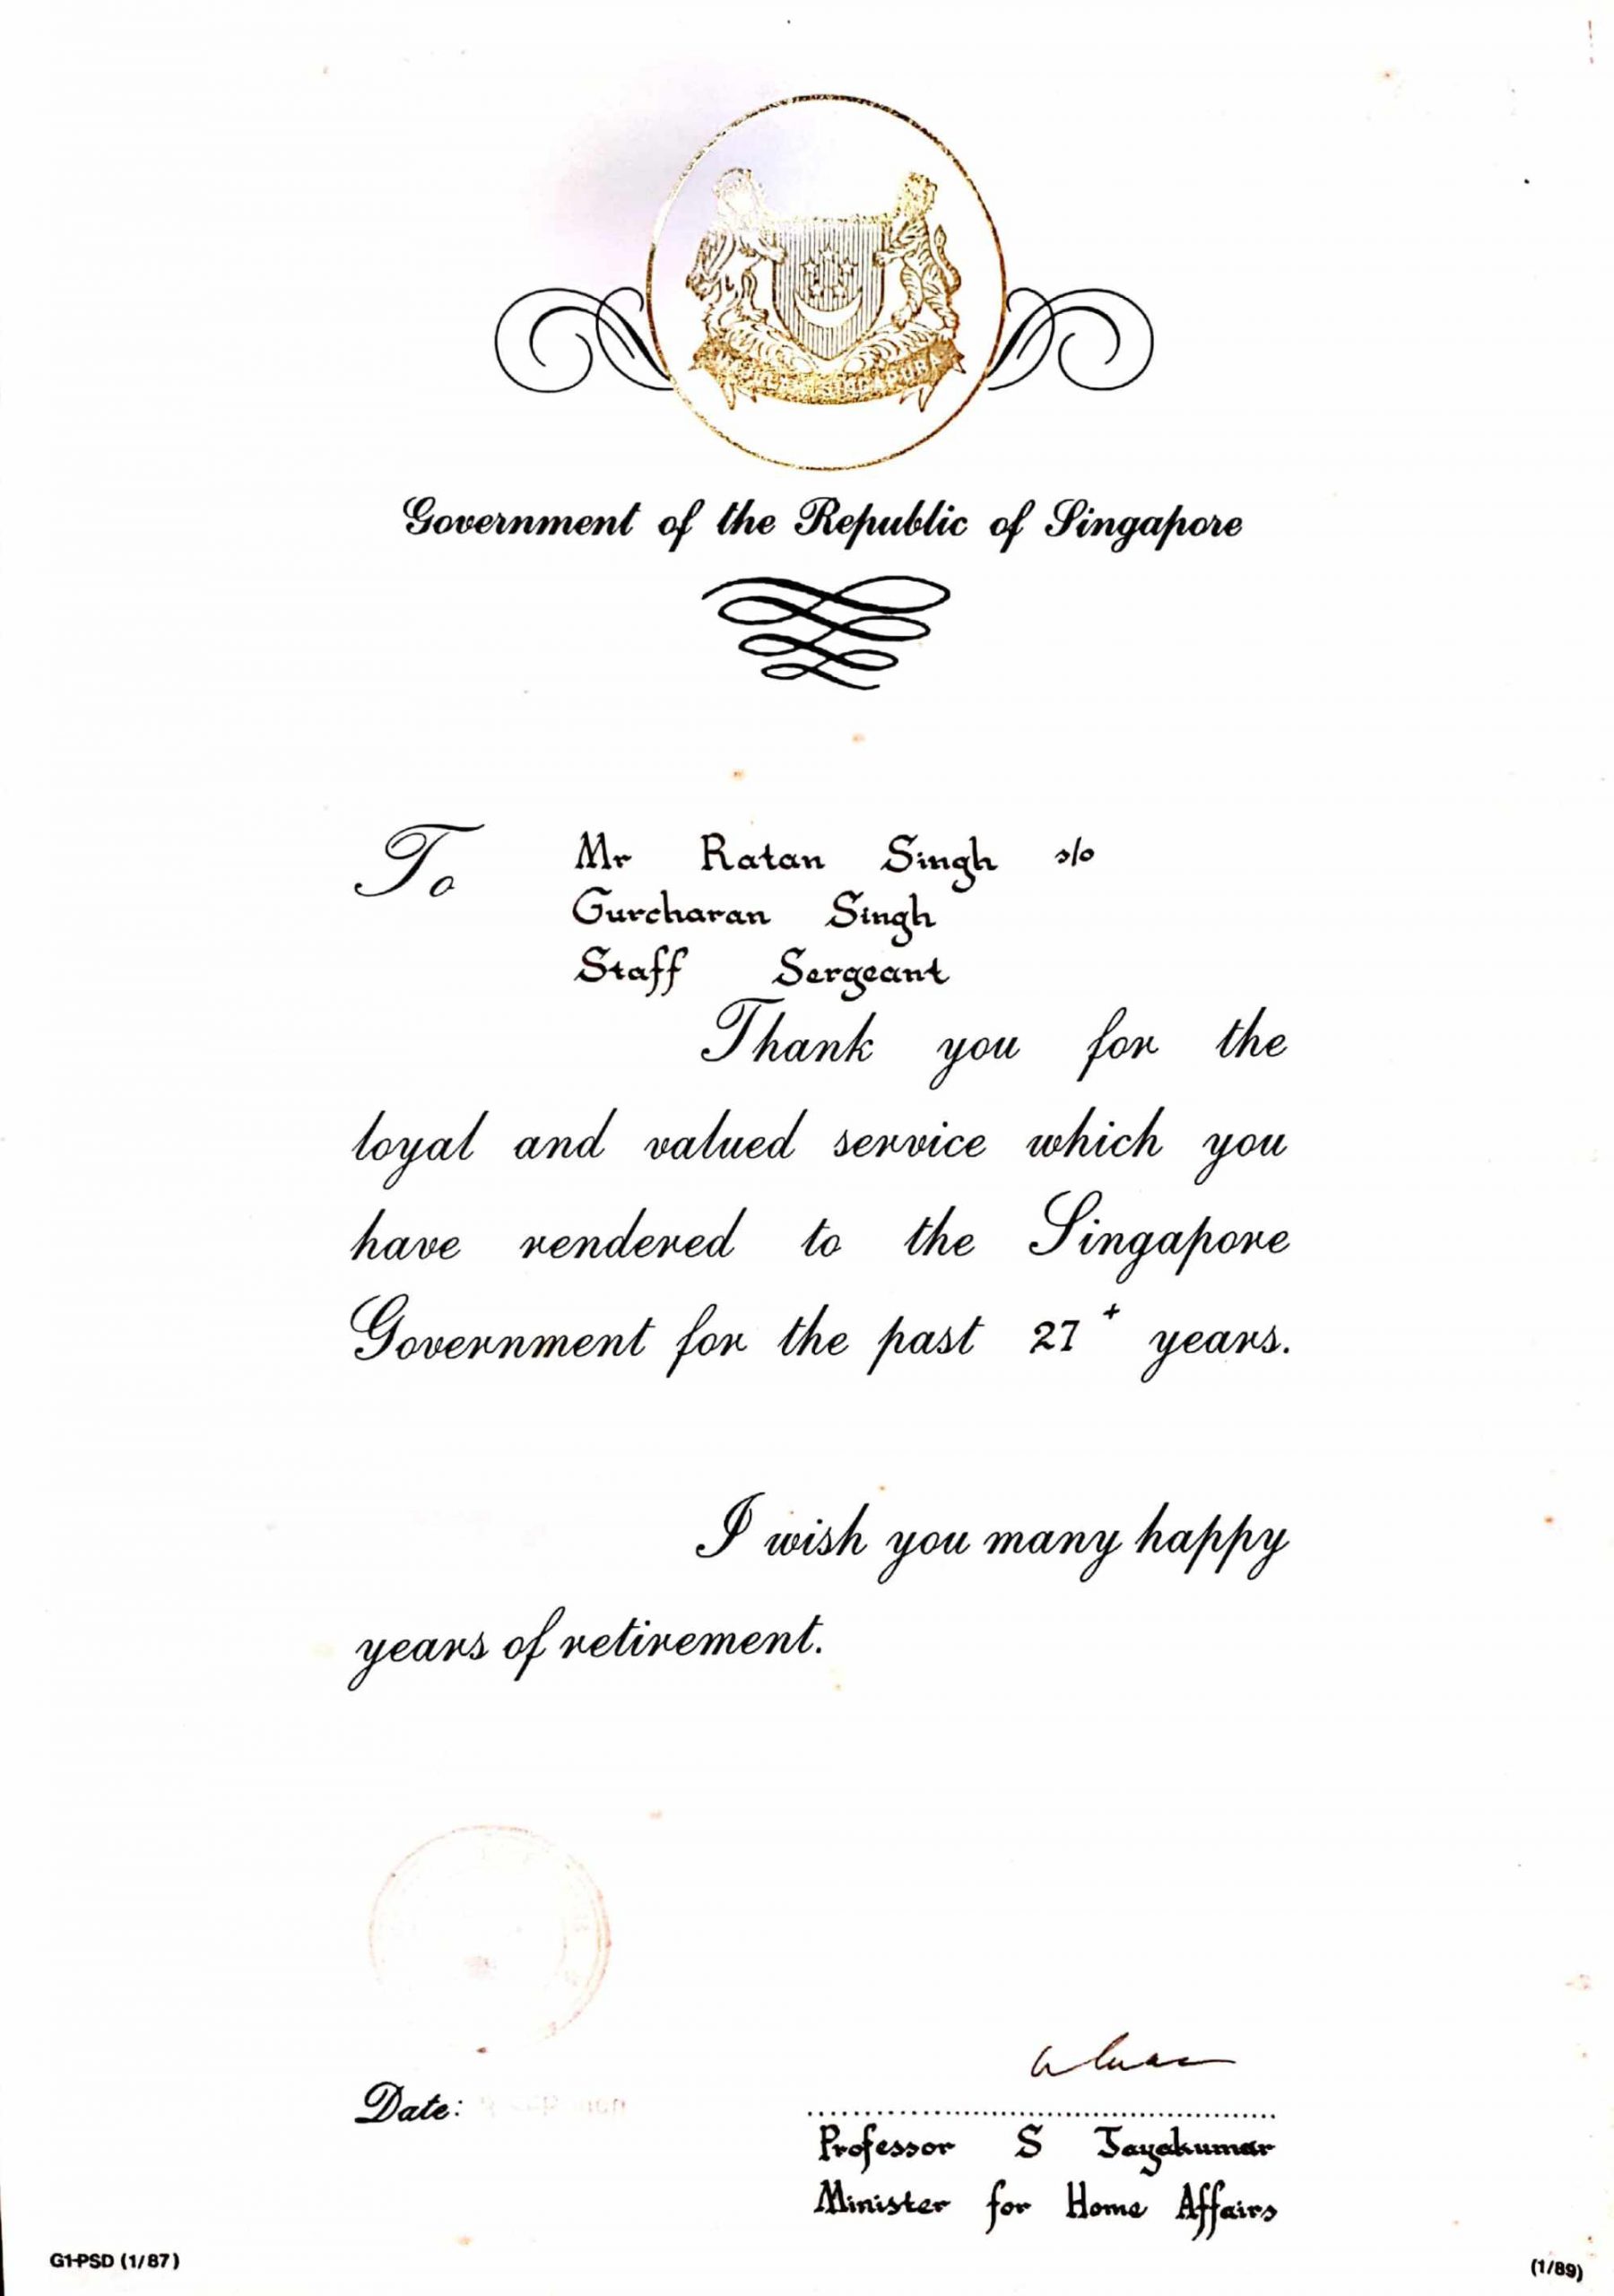 MAJULAH SINGAPURA
Government of the Republic of Singapore
To Mr Ratan Singh s/o
Gurcharan Singh
Staff Sergeant
Thank you for the
loyal and valued service which you
have rendered to the Singapore
Government for the past 27+ years.
I wish you many happy
years of retirement.
Date:
Professor S Jayakumar
Minister for Home Affairs
G1-PSD (1/87)
(1/89)